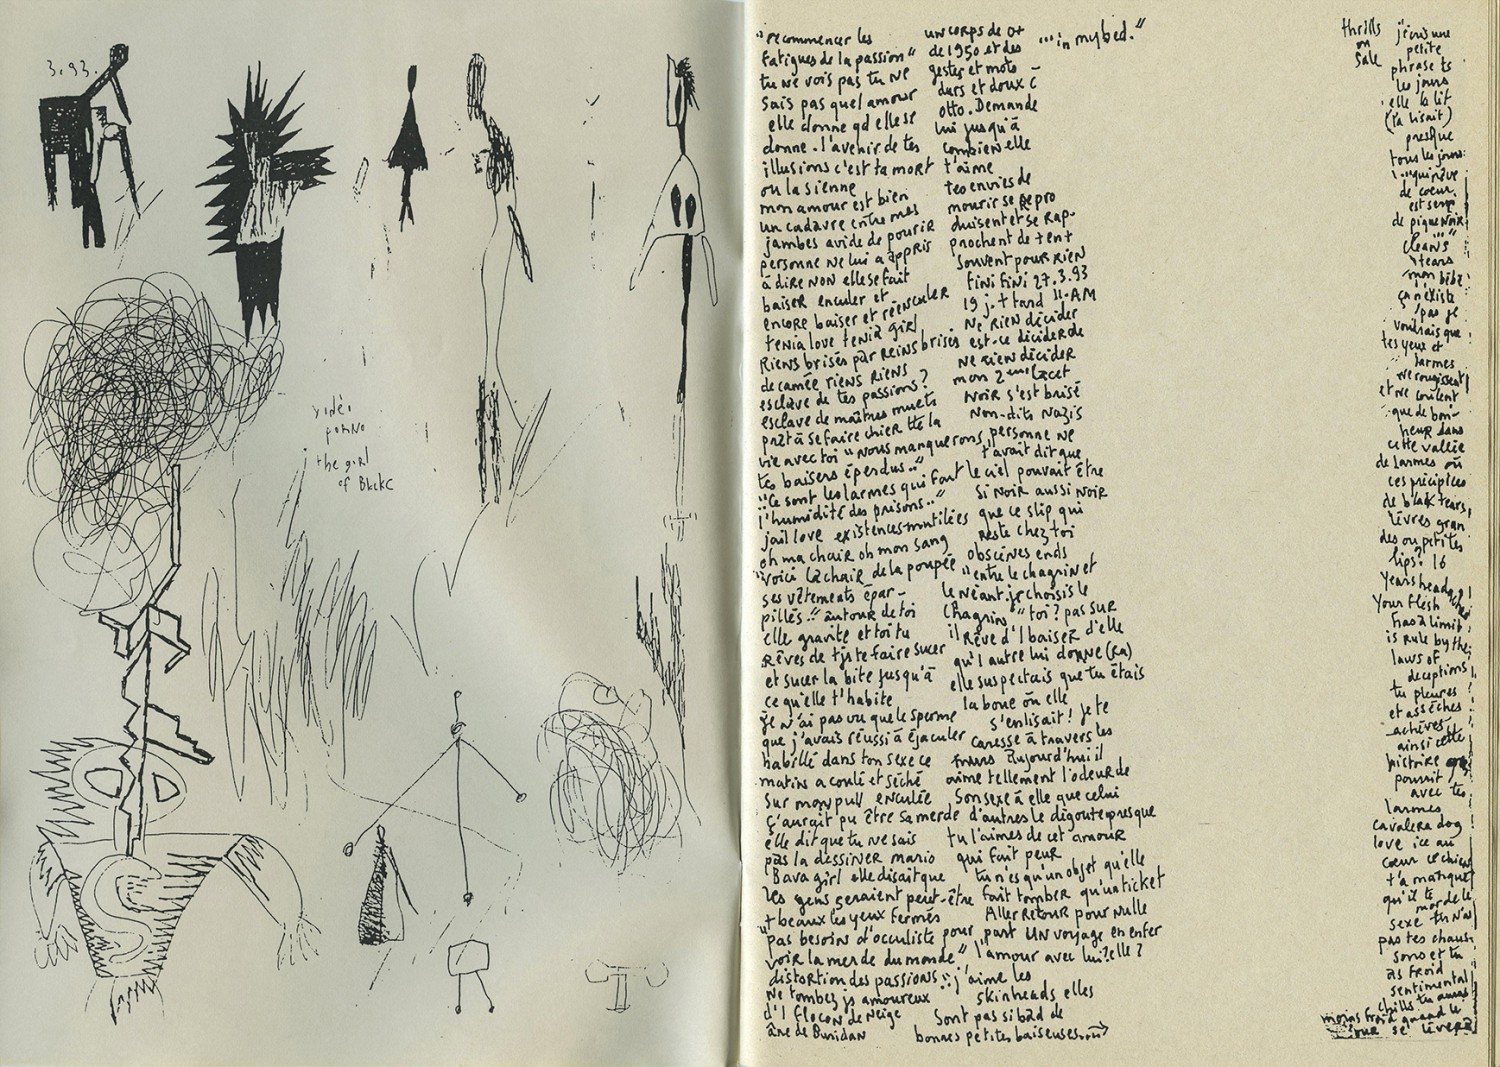 3.93.
vidéo
porno
the girl
of Black
"recommencer les
fatigues de la passion"
tu ne vois pas tu ne
sais pas quel amour
elle donne qd elle se
donne. l'avenir de tes
illusions c'est ta mort
ou la sienne
mon amour est bien
un cadavre entre mes
jambes avide de pourir
personne ne lui a appris
à dire NON elle se fait
baiser enculer et
encore baiser et réenculer
tenia love tenia girl
Riens brisés par reins brisés
de camée riens riens
esclave de tes passions?
esclave de maîtres muets
prêt à se faire chier tte la
vie avec toi "nous manquerons
tes baisers éperdus.."
"Ce sont les larmes qui font
l'humidité des prisons.."
jail love existences mutilées
oh ma chair oh mon sang
"voici la chair de la poupée
ses vêtements épar-
pillés." autour de toi
elle gravite et toi tu
rêves de tjs te faire sucer
et sucer la bite jusqu'à
ce qu'elle t'habite
je n'ai pas vu que le sperme
que j'avais réussi à éjaculer
habillé dans ton sexe ce
matin a coulé et séché
sur mon pull enculée
ç'aurait pu être sa merde
elle dit que tu ne sais
pas la dessiner mario
Bava girl elle disait que
les gens seraient peut-être
+ beaux les yeux fermés
pas besoin d'occuliste pour
voir la merde du monde"
distortion des passions
Ne tombez js amoureux
d'1 flocon de neige
âne de Buridan
un corps de 0+
de 1950 et des
gestes et mots -
durs et doux c
otto. Demande
lui jusqu'à
combien elle
t'aime
tes envies de
mourir se repro
duisent et se rap-
prochent de tent
souvent pour RIEN
fini fini 27.3.93
19 j. + tard 11.AM
Ne rien décider
est-ce décider de
ne rien décider
mon 2eme lacet
noir s'est brisé
Non-dits nazis
personne ne
t'avait dit que
le ciel pouvait être
si noir aussi noir
que ce slip qui
reste chez toi
obscènes ends
"entre le chagrin et
le néant je choisis le
chagrin" toi? pas sur
il rêve d'1 baiser d'elle
qu'1 autre lui donne (ra)
elle suspectais que tu étais
la boue où elle
s'enlisait! Je te
caresse à travers les
aujourd'hui il
aime tellement l'odeur de
son sexe à elle que celui
d'autres le dégoute presque
tu l'aimes de cet amour
qui fait peur
tu n'es qu'un objet qu'elle
fait tomber qu'un ticket
Aller retour pour nulle
part un voyage en enfer
l'amour avec lui?elle?
"j'aime les
skinheads elles
sont pas si bad de
bonnes petites baiseuses...
...in my bed."
thrills
on
sale
j'écris une
petite
phrase ts
les jours
elle la lit
(la lisait)
presque
tous les jours:
"qui rêve
de coeur
est servi
de pique noir
cleans"
tears
mon bébé
ça n'existe
pas je
voudrais que
tes yeux et
larmes
ne rougissent
et ne coulent
que de bon-
heur dans
cette vallée
de larmes où
ces précipices
de black tears,
lèvres gran
des ou petites
lips? 16
years
Your flesh
has a limit
is rule by the
laws of
deceptions
tu pleures
et assèches
achèves
ainsi cette
histoire
pourrit
avec tes
larmes
cavalera dog
love ice au
coeur ce chien
t'a manqué
qu'il te
morde le
sexe tu n'as
pas tes chaus-
sons et tu
as froid
sentimental
chills tu auras
moins froid quand le
jour se lèvera